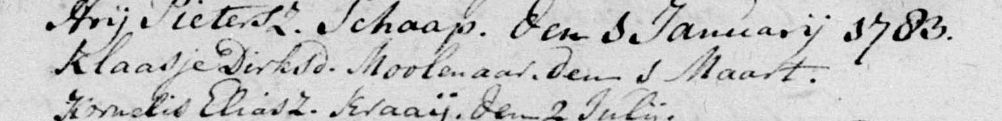 Arij Pietersz. Schaap. den 1 Januarij 1783.
Klaasje Dirksd. Moolenaar. den 1 Maart.
Kornelis Eliasz. Kraaij. den 2 Julij.